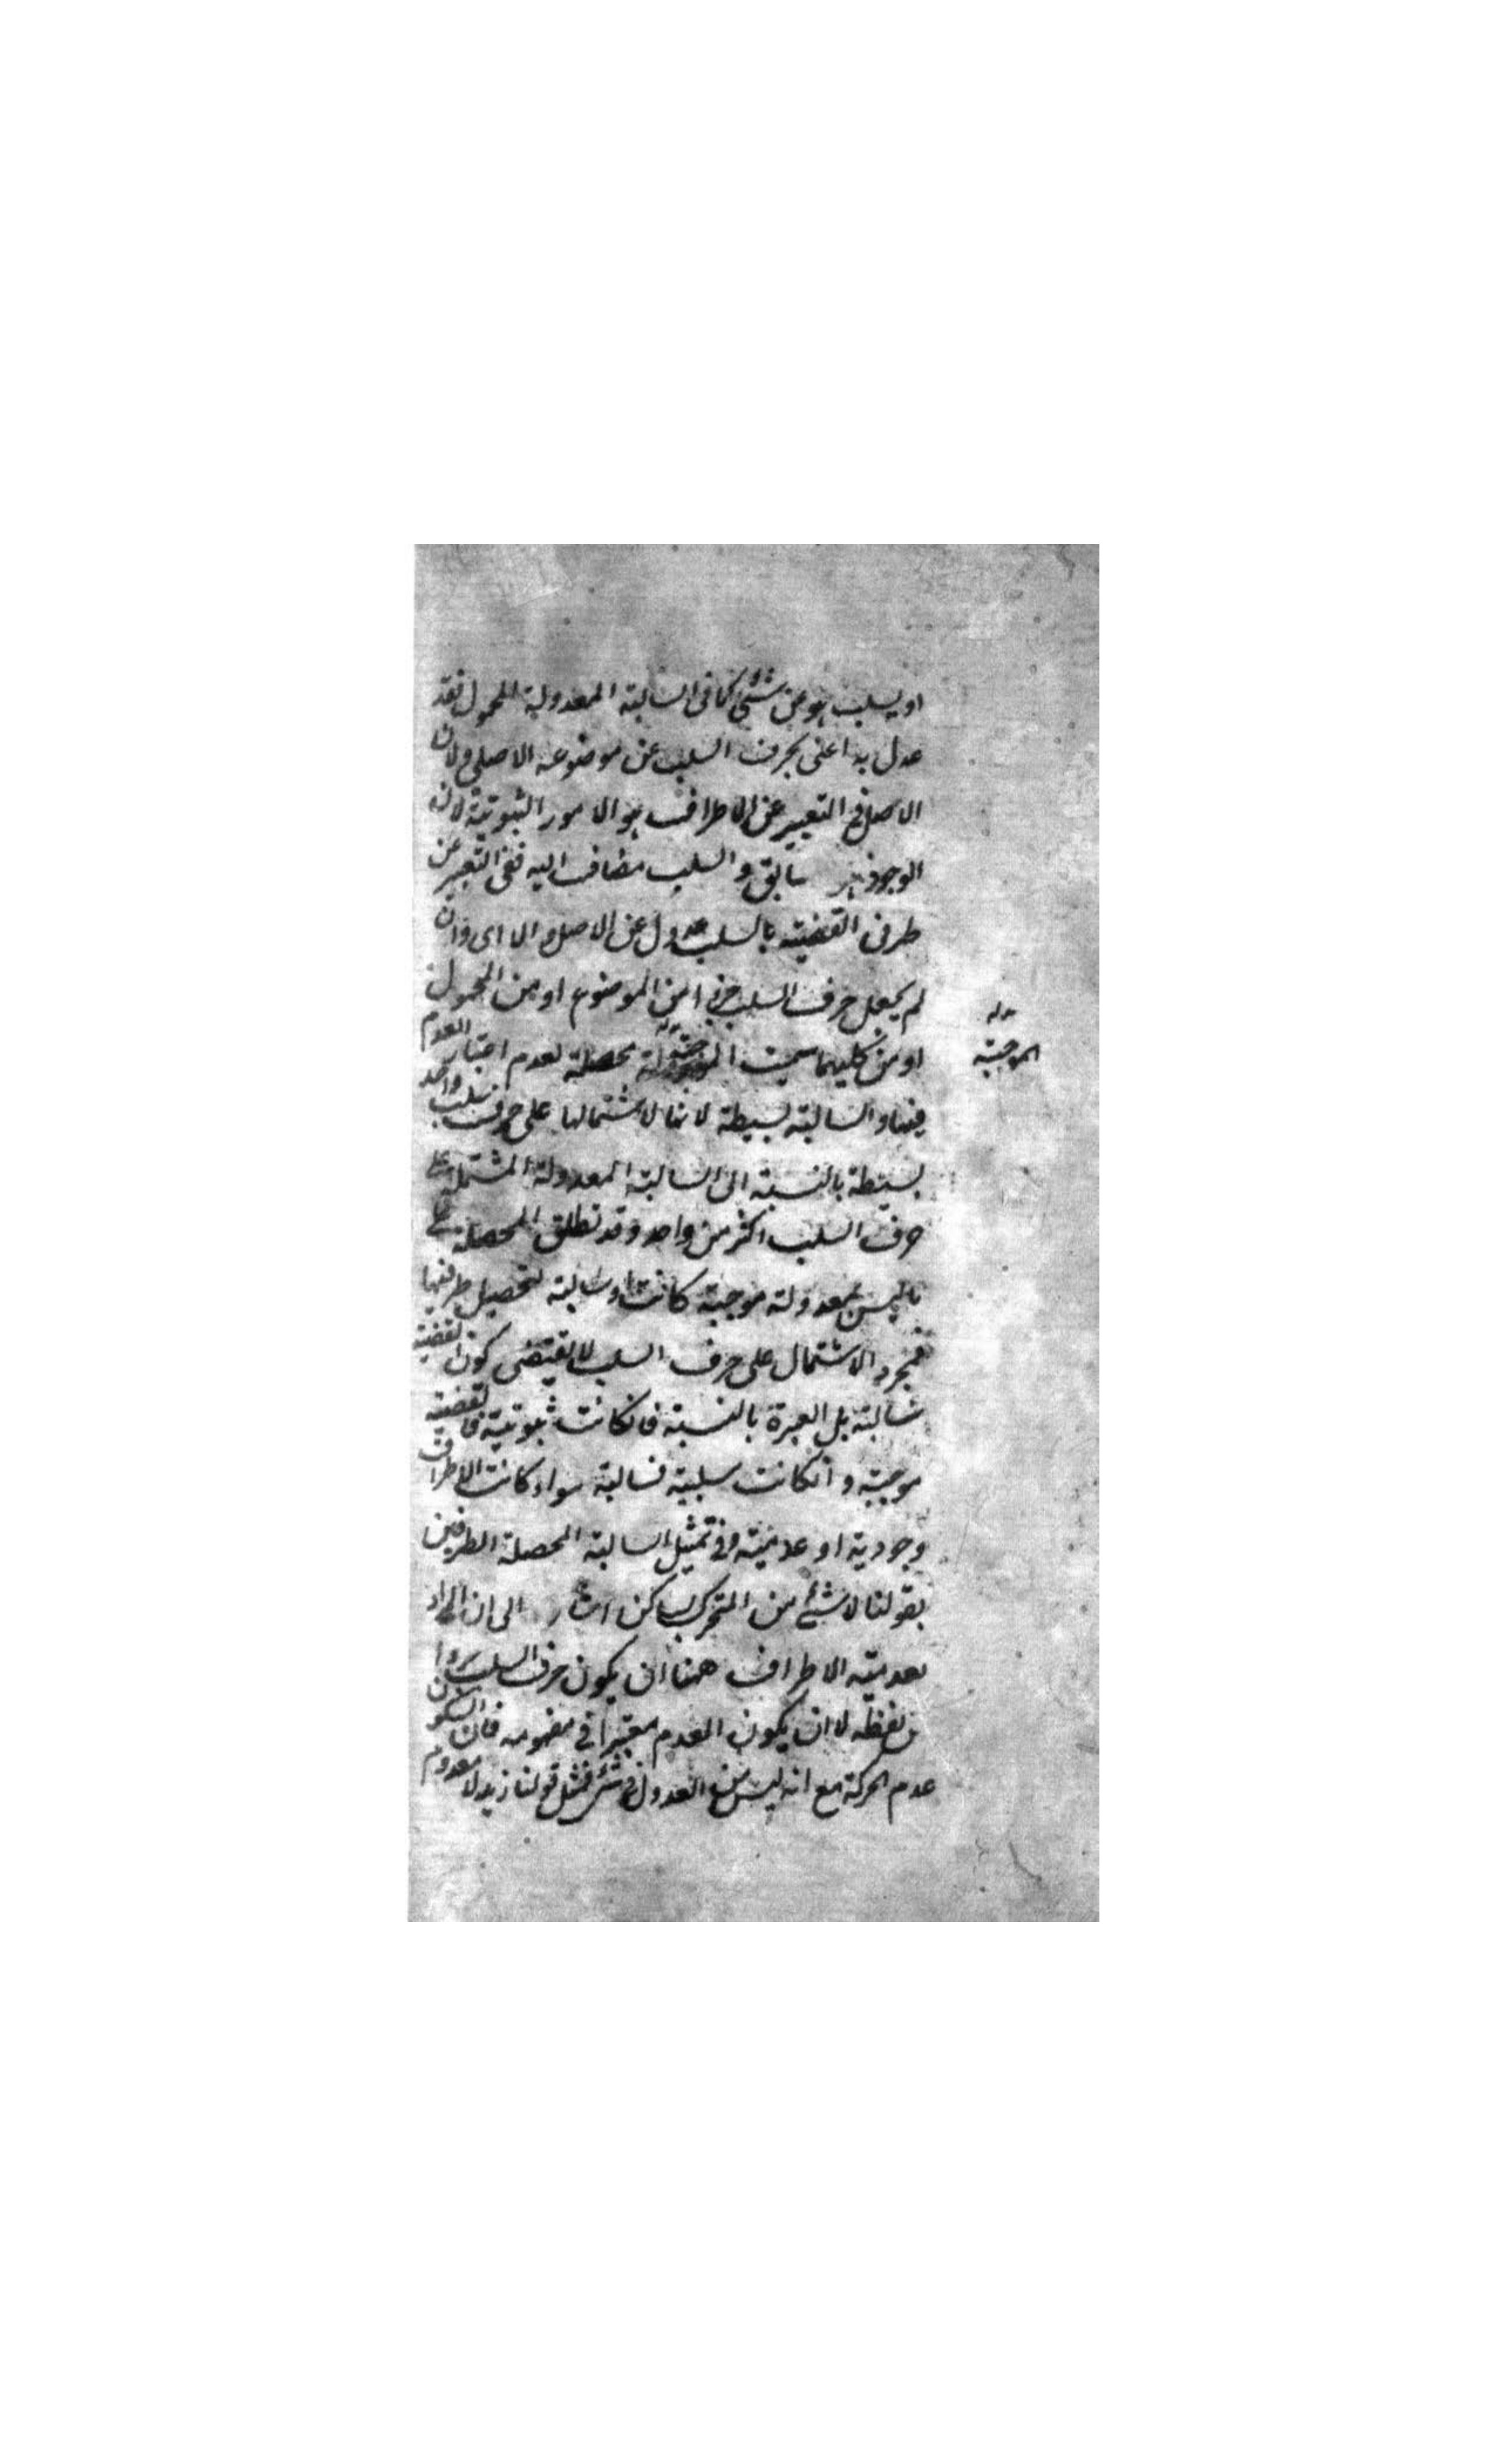 او يسلب هو عن شئ كما فى السالبة المعدولة المحمول فقد
عدل به اعنى بحرف السلب عن موضوعه الاصلى و لان
الاصل فى التعبير عن الاطراف هو الامور الثبوتية لان
الوجود سابق و السلب مضاف اليه ففى التعبير عن
طرفى القضية بالسلب عدول عن الاصل و الا اى و ان
لم يجعل حرف السلب جزءا من الموضوع او من المحمول
او من كليهما سميت الموجبة محصلة لعدم اعتبار العدم
فيها و السالبة بسيطة لانها لاشتمالها على حرف سلب واحد
بسيطة بالنسبة الى السالبة المعدولة المشتملة على
حرف السلب اكثر من واحد و قد تطلق المحصلة على
ما ليس بمعدولة موجبة كانت او سالبة لتحصيل طرفيها
فمجرد الاشتمال على حرف السلب لا يقتضى كون القضية
سالبة بل العبرة بالنسبة فانكانت ثبوتية فالقضية
موجبة و انكانت سلبية فسالبة سواء كانت الاطراف
وجودية او عدمية و فى تمثيل السالبة المحصلة الطرفين
بقولنا لا شئ من المتحرك بساكن اشار الى ان المراد
بعدمية الاطراف ههنا ان يكون حرف السلب جزءا
من لفظه لا ان يكون العدم معتبرا فى مفهومه فان السكون
عدم الحركة مع انه ليس من العدول فى شئ فمثل قولنا زيد لا معدوم
الموجبة